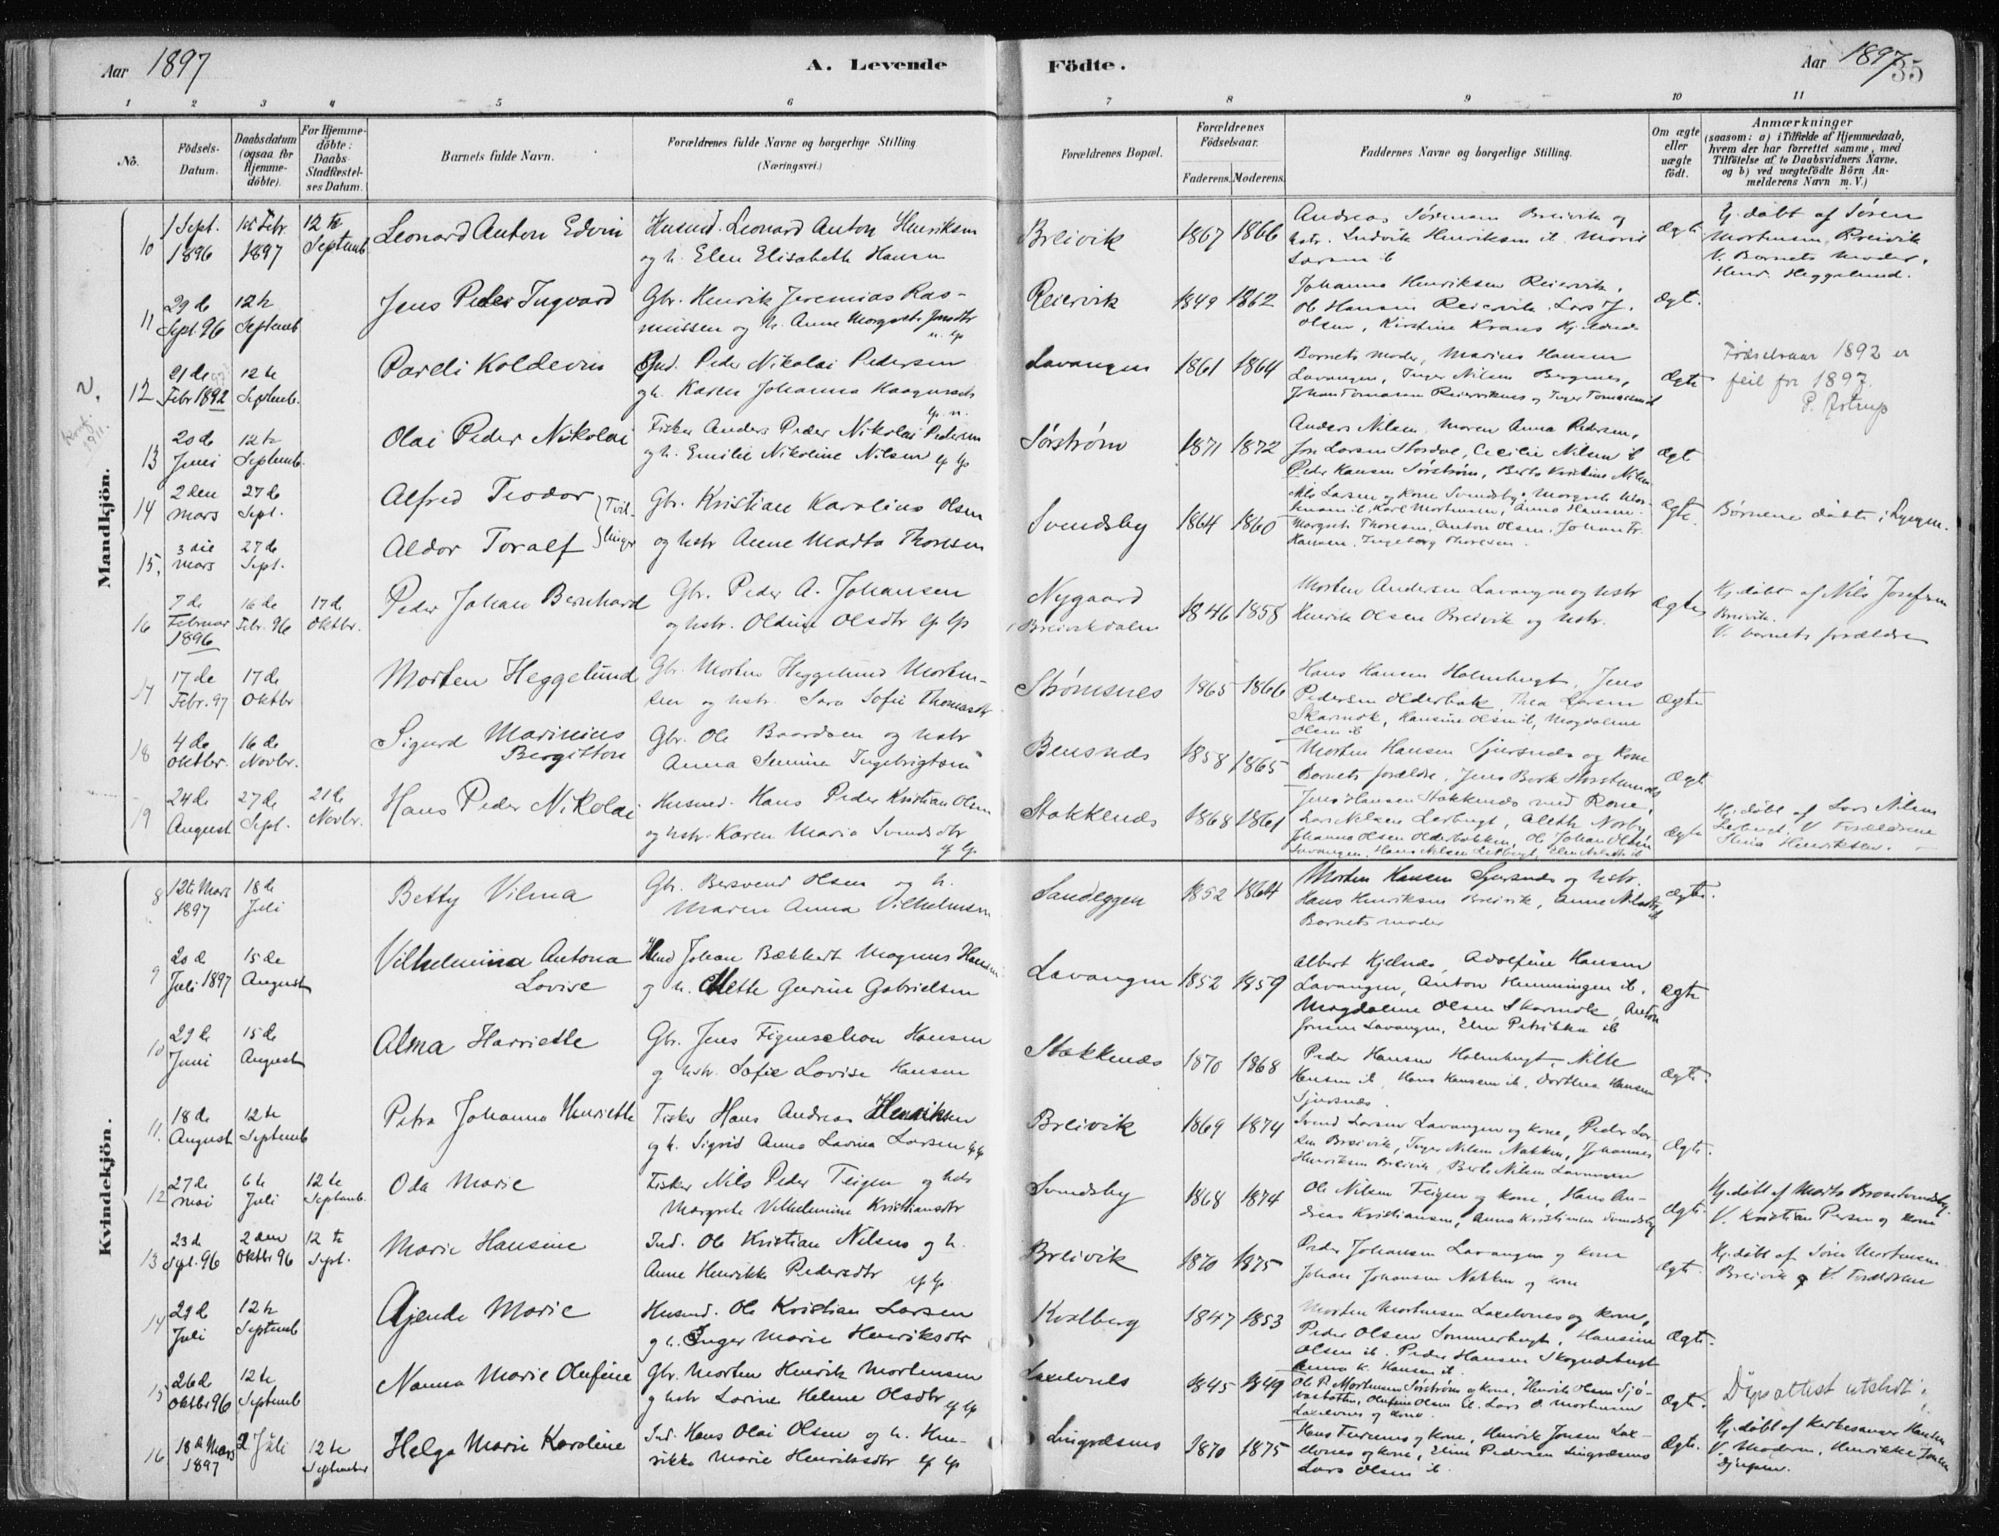 Aar 1897
A. Levende
Födte.
Aar 1897
35
1 2 3 4 5 6 7 8 9 10 11
No.
Födsels-Datum.
Daabsdatum (ogsaa for Hjemme-döbte).
For Hjemme-döbte: Daabs-Stadfæstel-ses Datum.
Barnets fulde Navn.
Forældrenes fulde Navne og borgerlige Stilling (Næringsvei.)
Forældrenes Bopæl.
Forældrenes Födselsaar.
Faderens. Moderens.
Faddernes Navne og borgerlige Stilling.
Om ægte eller uægte födt.
Anmærkninger (saasom: a) i Tilfælde af Hjemmedaab, hvem der har forrettet samme, med Tilföielse af to Daabsvidners Navne, og b) ved uægtefödte Börn Anmelderens Navn m. V.)
Mandkjön.
10 1 Sept. 1896 15 Febr. 1897 12te Septemb. Leonard Anton Edvin
Husmd. Leonard Anton Henriksen og h. Elen Elisabeth Hansen
Breivik 1867 1866
Andreas Sörensen Breivik og hstr. Ludvik Henriksen ib. Larsen ib
Ægte
Hj.døbt af Søren Mortensen, Breivik V. Barnets moder, Heggelund.
11 29de Sept 96 12te Septemb Jens Peder Ingvard
Gbr. Henrik Jeremias Rasmussen og h. Anne Margrete Jensdtr
Reiervik 1849 1862
Johanna Henriksen Reiervik, Ole Hansen Reiervik, Lars J. Olsen, Kirstine Krans Kjelnes
Ægt.
12 21de Febr 1892 12te Septemb. Pareli Koldevin
Ind. Peder Nikolai Pedersen og h. Karen Johanna Haagensdtr
Lavangen 1861 1864
Barnets moder, Marius Hansen Lavangen, Inger Nilsen Bergnes, Johan Tomassen Reierviknes og Inger Tomassen ib
Ægte
Fødselsaar 1892 er feil for 1897. P. Astrup
13 20de Juni 12te Septemb. Olai Peder Nikolai
Fisker Anders Peder Nikolai Pedersen og h. Emilie Nikoline Nilsen
Sørstrøm 1871 1872
Anders Nilsen, Maren Anna Pedersen, Jon Larsen Stordal, Cecilie Nilsen ib Peder Hansen Sørstrøm, Berte Kristine Nilsen
Ægt
14 2den Mars 27de Sept. Alfred Teodor
15. 3die Mars 27de Sept. Aldor Toralf
Tvillinger
Gbr. Kristian Karolius Olsen og hstr Anne Marta Thoresen
Svendsby 1864 1860
Nils Larsen og Kone Svendsby, Margrete Karl Mortensen, Anna Hansen Margrete Thoresen, Anton Olsen, Johan Fr. Hansen, Ingeborg Thoresen.
Ægte
Børnene døbte i Lyngen.
16 7de Februar 1896 16de Febr. 96 17de Oktbr. Peder Johan Bernhard
Gbr. Peder A. Johansen og hstr. Oldine Olsdtr
Nygaard i Breivikdalen 1846 1858
Morten Andersen Lavangen og hstr Henrik Olsen Breivik og hstr.
Ægte
Hj.døbt af Nils Josefsen Breivik. V. barnets forældre
17 17de Febr. 97 17de Oktbr Morten Heggelund
Gbr. Morten Heggelund Mortensen og hstr. Sara Sofie Thomasdtr
Strømsnes 1865 1866
Hans Hansen Holmbugt, Jens Pedersen Olderbak, Thea Larsen Skarmok, Hansine Olsen ib, Magdalene Olsen ib
Ægte
18 4de Oktbr. 16de Novbr. Sigurd Marinius Bergitton
Gbr. Ole Baardsen og hstr Anna Ingebrigtsen
Bensnes 1858 1865
Morten Hansen Sjursnes og kone Barnets forældre,
Ægt
19 24de August 27de Sept. 21de Novbr. Hans Peder Nikolai
Husmd. Hans Peder Kristian Olsen og hstr. Karen Maria Svendsdtr
Stakkenes 1868 1861
Jens Hansen Stakkenes med Kone, Lars Nilsen Lerbugt, Aleth Norby Johanna Olsen Olderbakken, Ole Johan Olsen Lavangen, Hans Nilsen Lerbugt,
Ægte
Hj.døbt af Lars Nilsen Lerbugt. V. Forældrene Stina Henriksen.
Kvindekjön.
8 12te Mars 1897 18de Juli Betty Vilma
Gbr. Bersvend Olsen og h. Maren Anna Vilhelmsen
Sandeggen 1852 1864
Morten Hansen Sjursnes og hstr. Hans Henriksen Breivik, Anne Nilsdtr ib Barnets moder
Ægte.
9 20de Juli 1897 15de August Vilhelmina Antona Lovise
Ind Johan Bækkert Magnus Hansen og h. Mette Gurine Gabrielsen
Lavangen 1852 1859
Albert Kjelnes, Adolfine Hansen Lavangen, Anton Henningen ib. Magdalene Olsen Skarmok, Anton Jensen Lavangen, Elen Petrikka ib
Ægte
10 29de Juni 15de August Alma Harriette
Gbr. Jens Figenschou Hansen og hstr. Sofie Lovise Hansen
Stakkenes 1870 1868
Peder Hansen Holmbugt, Nille Hansen ib, Hans Hansen ib. Dorthea Hansen Sjursnes.
Ægte.
11. 18de August 12te Septemb Petra Johanna Henriette
Fisker Hans Andreas Henriksen og h. Sigrid Anna Lavina Larsen
Breivik 1869 1874
Svend Larsen Lavangen og kone, Peder Larsen Breivik, Inger Nilsen Nakken, Johannes Henriksen Breivik, Berte Nilsen Lavangen
Ægte.
12 27de Mai 6te Juli 12te Septemb. Oda Marie
Fisker Nils Peder Teigen og hstr Margrete Vilhelmine Kristiansdtr
Svendsby 1868 1874
Ole Nilsen Teigen og kone, Hans Andreas Kristiansen, Anna Kristiansen Svendsby
Ægte.
Hj.døbt af Marta Brose Svendsby. V. Kristian Persen og kone
13 23d Sept. 96 2den Oktbr 96 12te Sept. Marie Hansine
Ind. Ole Kristian Nilsen og h. Anne Henrikke Pedersdtr
Breivik 1870 1875
Peder Johansen Lavangen og kone Johan Johansen Nakken og kone
Ægte.
Hj.døbt af Sören Mortensen Breivik V. Forældrene
14 29de Juli 12te Septemb Ajende Marie
Husmd. Ole Kristian Larsen og h. Inger Marie Henriksdtr
Kvalberg 1847 1853
Morten Mortensen Lakselvnes og kone, Peder Olsen Sommerbugt, Hansine Olsen ib. Peder Hansen Skognesbugt Anna K. Hansen ib
Ægte.
15 26de Oktbr 96 12te Septemb Nanna Marie Olufine
Gbr. Morten Henrik Mortensen og hstr Lorine Helene Olsdtr
Lakselvnes 1845 1849
Ole P. Mortensen Sørstrøm og kone, Henrik Olsen Olufine Olsen ib. Lars O. Mortensen Lakselvnes og kone.
Ægte.
Døpsattest utstedt
16 18de Mars 1897 2 Juli 12te September Helga Marie Karoline
Ind. Hans Olai Olsen og h. Henrikke Marie Henriksdtr
Lingrasnes 1870 1875
og kone, Henrik Jensen Lakselvnes og kone, Eline Pedersen Lars Olsen ib
Ægte.
Hj.døbt af Kirkesanger Hansen V. Moderen, Henrikke Jensen